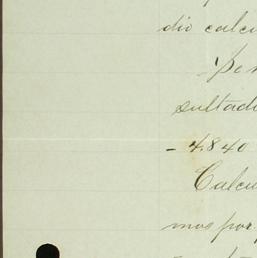 dio calcu
Por
sultado
- 4840
Calcu
mos por